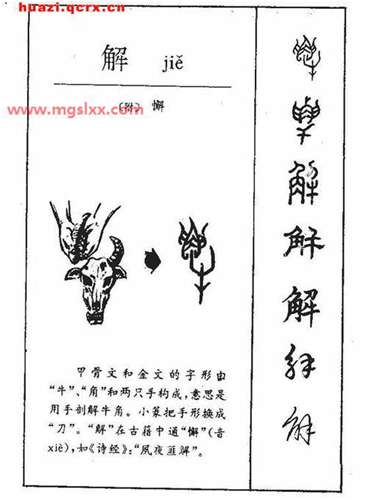 huazi.qcrx.cn
解 jiě
〔附〕 懈
www.mgslxx.com
甲骨文和金文的字形由
“牛”、“角”和两只手构成，意思是
用手剖解牛角。小篆把手形换成
“刀”。“解”在古籍中通“懈”（音
xiè），如《诗经》：“夙夜匪解”。
解